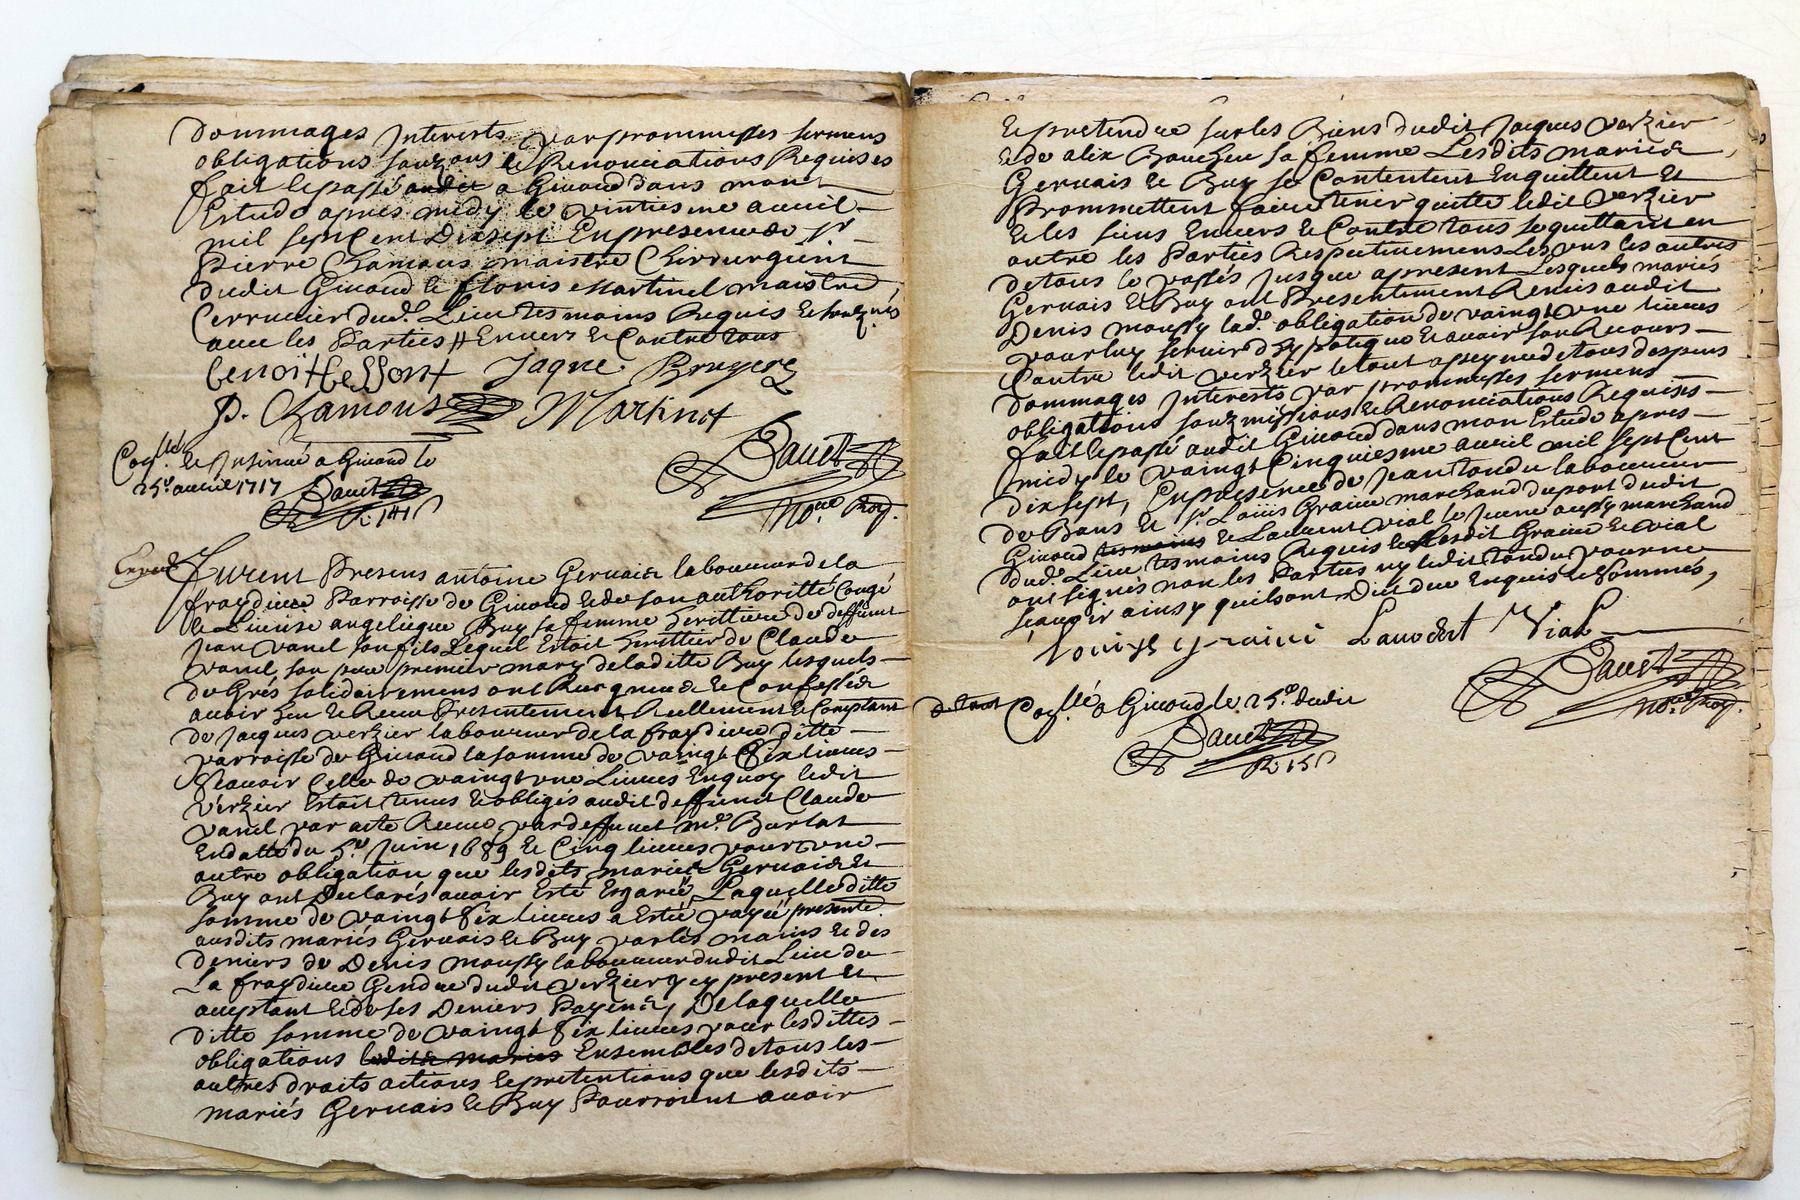 Dommages Interests par prommesses sermens
obligations soubzons & Renonciations Requises
fait & passé audit a Givord dans mont
Estude apres midy le vintiesme avril
mil sept Cent Dixsept En presence de Sr
Pierre Chamous maistre Chirurgient
dudit Givord & floris Martinel maistre
Cerrurier dud. Lieu tesmoins Requis & soubznés
avec les Parties # Envers & Contre tous
benoit besson Jaque Bruyere
P. Chamous Martinet
Coq.llé & Insinué a Givord le
25e avril 1717
Dauet
Dauet
No.re Roy.
Furent Presens antoine Gervais laboureur de la
fraydiere Parroisse de Givord & de son authoritté Congé
& License angelique Buy sa femme herittiere de deffunt
Jean vanel son fils Lequel Estoit heritier de Claude
vanel son pere premier mary de laditte Buy lesquels
de Grés solidairemens ont & Confessés
avoir heu & Receu Presentement Reellement & Comptant
de Jacques verzier laboureur de la fraydiere ditte
parroisse de Givord la somme de vaingt six livres
sçavoir Celle de vaingt une Livres En quoy ledit
verzier Estoit tenus & obligés audit deffunct Claude
vanel par acte Receu par deffunct me. Burlat
En datte du 5e Juin 1689 & Cinq livres pour une
autre obligation que lesdits mariés Gervais &
Buy ont Declarés avoir Esté Esgarée, Laquelle ditte
somme de vaingt six livres a Estée payée presente.
ausdits mariés Gervais & Buy par les mains & des
deniers de Denis moussy laboureur dudit Lieu de
La fraydiere Gendre dudit verzier y cy present &
acceptant & de ses Deniers Payent, De laquelle
ditte somme de vaingt six livres pour lesdittes
obligations lesdits mariés Ensembles de tous les
autres droits actions & pretentions que lesdits
mariés Gervais & Buy Pourroient avoir
& pretendre sur les Biens dudit Jacques verzier
& de alix Boucheu sa femme Lesdits mariés
Gervais & Buy se Contentent En quittent &
Prommettent faire tenir quitte ledit verzier
& les siens Envers & Contre tous se quittant en
outre les Parties Respectivemens Les uns les autres
de tous le passés Jusque apresent Lesquels mariés
Gervais & Buy ont Presentement Remis audit
Denis moussy lad.e obligation de vaingt une livres
pour luy servir d'hypotique & avoir son Recours
Contre ledit verzier le tout a peyne de tous despens
Dommages Interests par prommesses sermens
obligations soubzmissions & Renonciations Requises
fait & passé audit Givord dans mon Estude apres
midy le vaingt Cinquiesme avril mil sept Cent
dixsept, En presence de Jean tondu laboureur
de Bans & Sr Loüis Graine marchand du port dudit
Givord tesmoins & Laurent vial le jeune aussy marchand
dud. Lieu tesmoins Requis & Lesdit Graine & vial
ont signés non les Parties ny ledit tondu pour ne
sçavoir ainsy quils ont Dit due Enquis & Sommés,
Louis graini Laurent Vial
Dauet
No.re Roy.
Coq.llé a Givord le 25.e dudit
Dauet